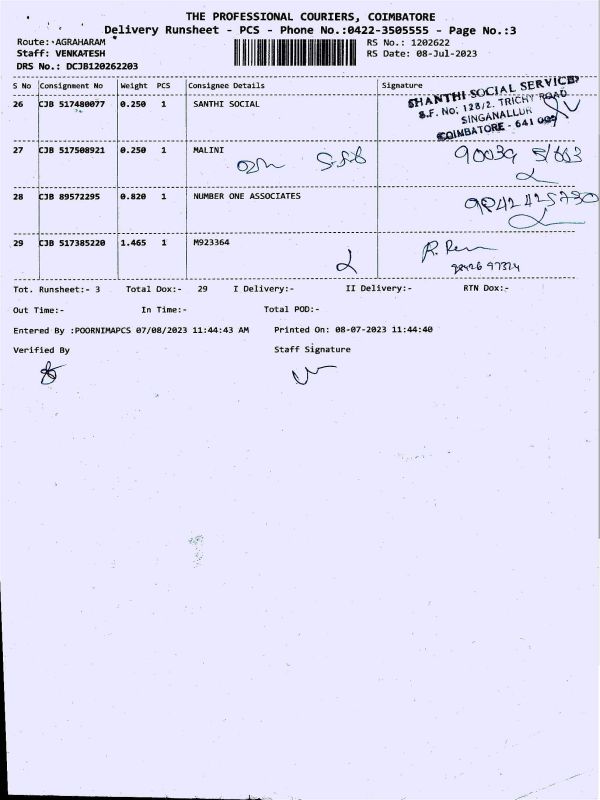 THE PROFESSIONAL COURIERS, COIMBATORE
Delivery Runsheet - PCS - Phone No.:0422-3505555 - Page No.:3
Route: AGRAHARAM RS No.: 1202622
Staff: VENKATESH RS Date: 08-Jul-2023
DRS No.: DCJB120262203
S No Consignment No Weight PCS Consignee Details Signature
26 CJB 517480077 0.250 1 SANTHI SOCIAL
SHANTHI SOCIAL SERVICE
S.F. No: 128/2, TRICHY ROAD
SINGANALLUR
COIMBATORE - 641 005
27 CJB 517508921 0.250 1 MALINI
28 CJB 89572295 0.820 1 NUMBER ONE ASSOCIATES
29 CJB 517385220 1.465 1 M923364
98426 97324
Tot. Runsheet:- 3 Total Dox:- 29 I Delivery:- II Delivery:- RTN Dox:-
Out Time:- In Time:- Total POD:-
Entered By :POORNIMAPCS 07/08/2023 11:44:43 AM Printed On: 08-07-2023 11:44:40
Verified By Staff Signature